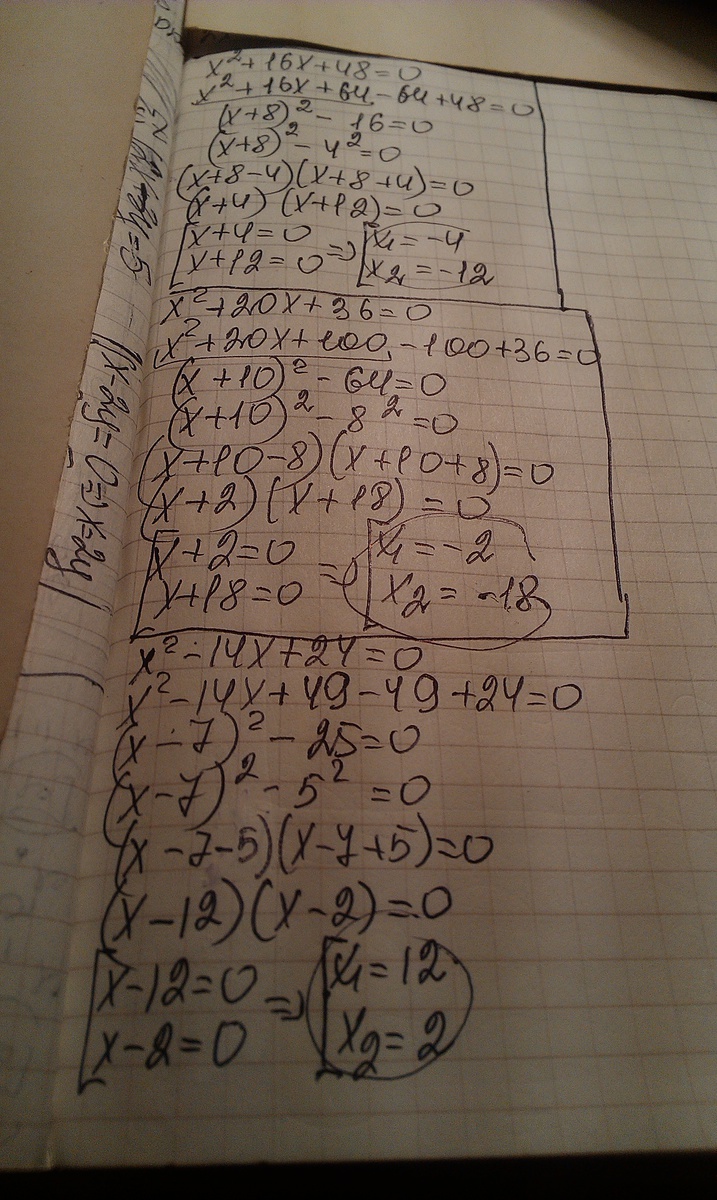 x² + 16x + 48 = 0
x² + 16x + 64 - 64 + 48 = 0
(x+8)² - 16 = 0
(x+8)² - 4² = 0
(x+8-4)(x+8+4) = 0
(x+4)(x+12) = 0
[x+4=0 => [x₁ = -4
x+12=0 x₂ = -12
x² + 20x + 36 = 0
x² + 20x + 100 - 100 + 36 = 0
(x+10)² - 64 = 0
(x+10)² - 8² = 0
(x+10-8)(x+10+8) = 0
(x+2)(x+18) = 0
[x+2=0 => [x₁ = -2
x+18=0 x₂ = -18
x² - 14x + 24 = 0
x² - 14x + 49 - 49 + 24 = 0
(x-7)² - 25 = 0
(x-7)² - 5² = 0
(x-7-5)(x-7+5) = 0
(x-12)(x-2) = 0
[x-12=0 => [x₁ = 12
x-2=0 x₂ = 2
x-2y=0=>x=2y